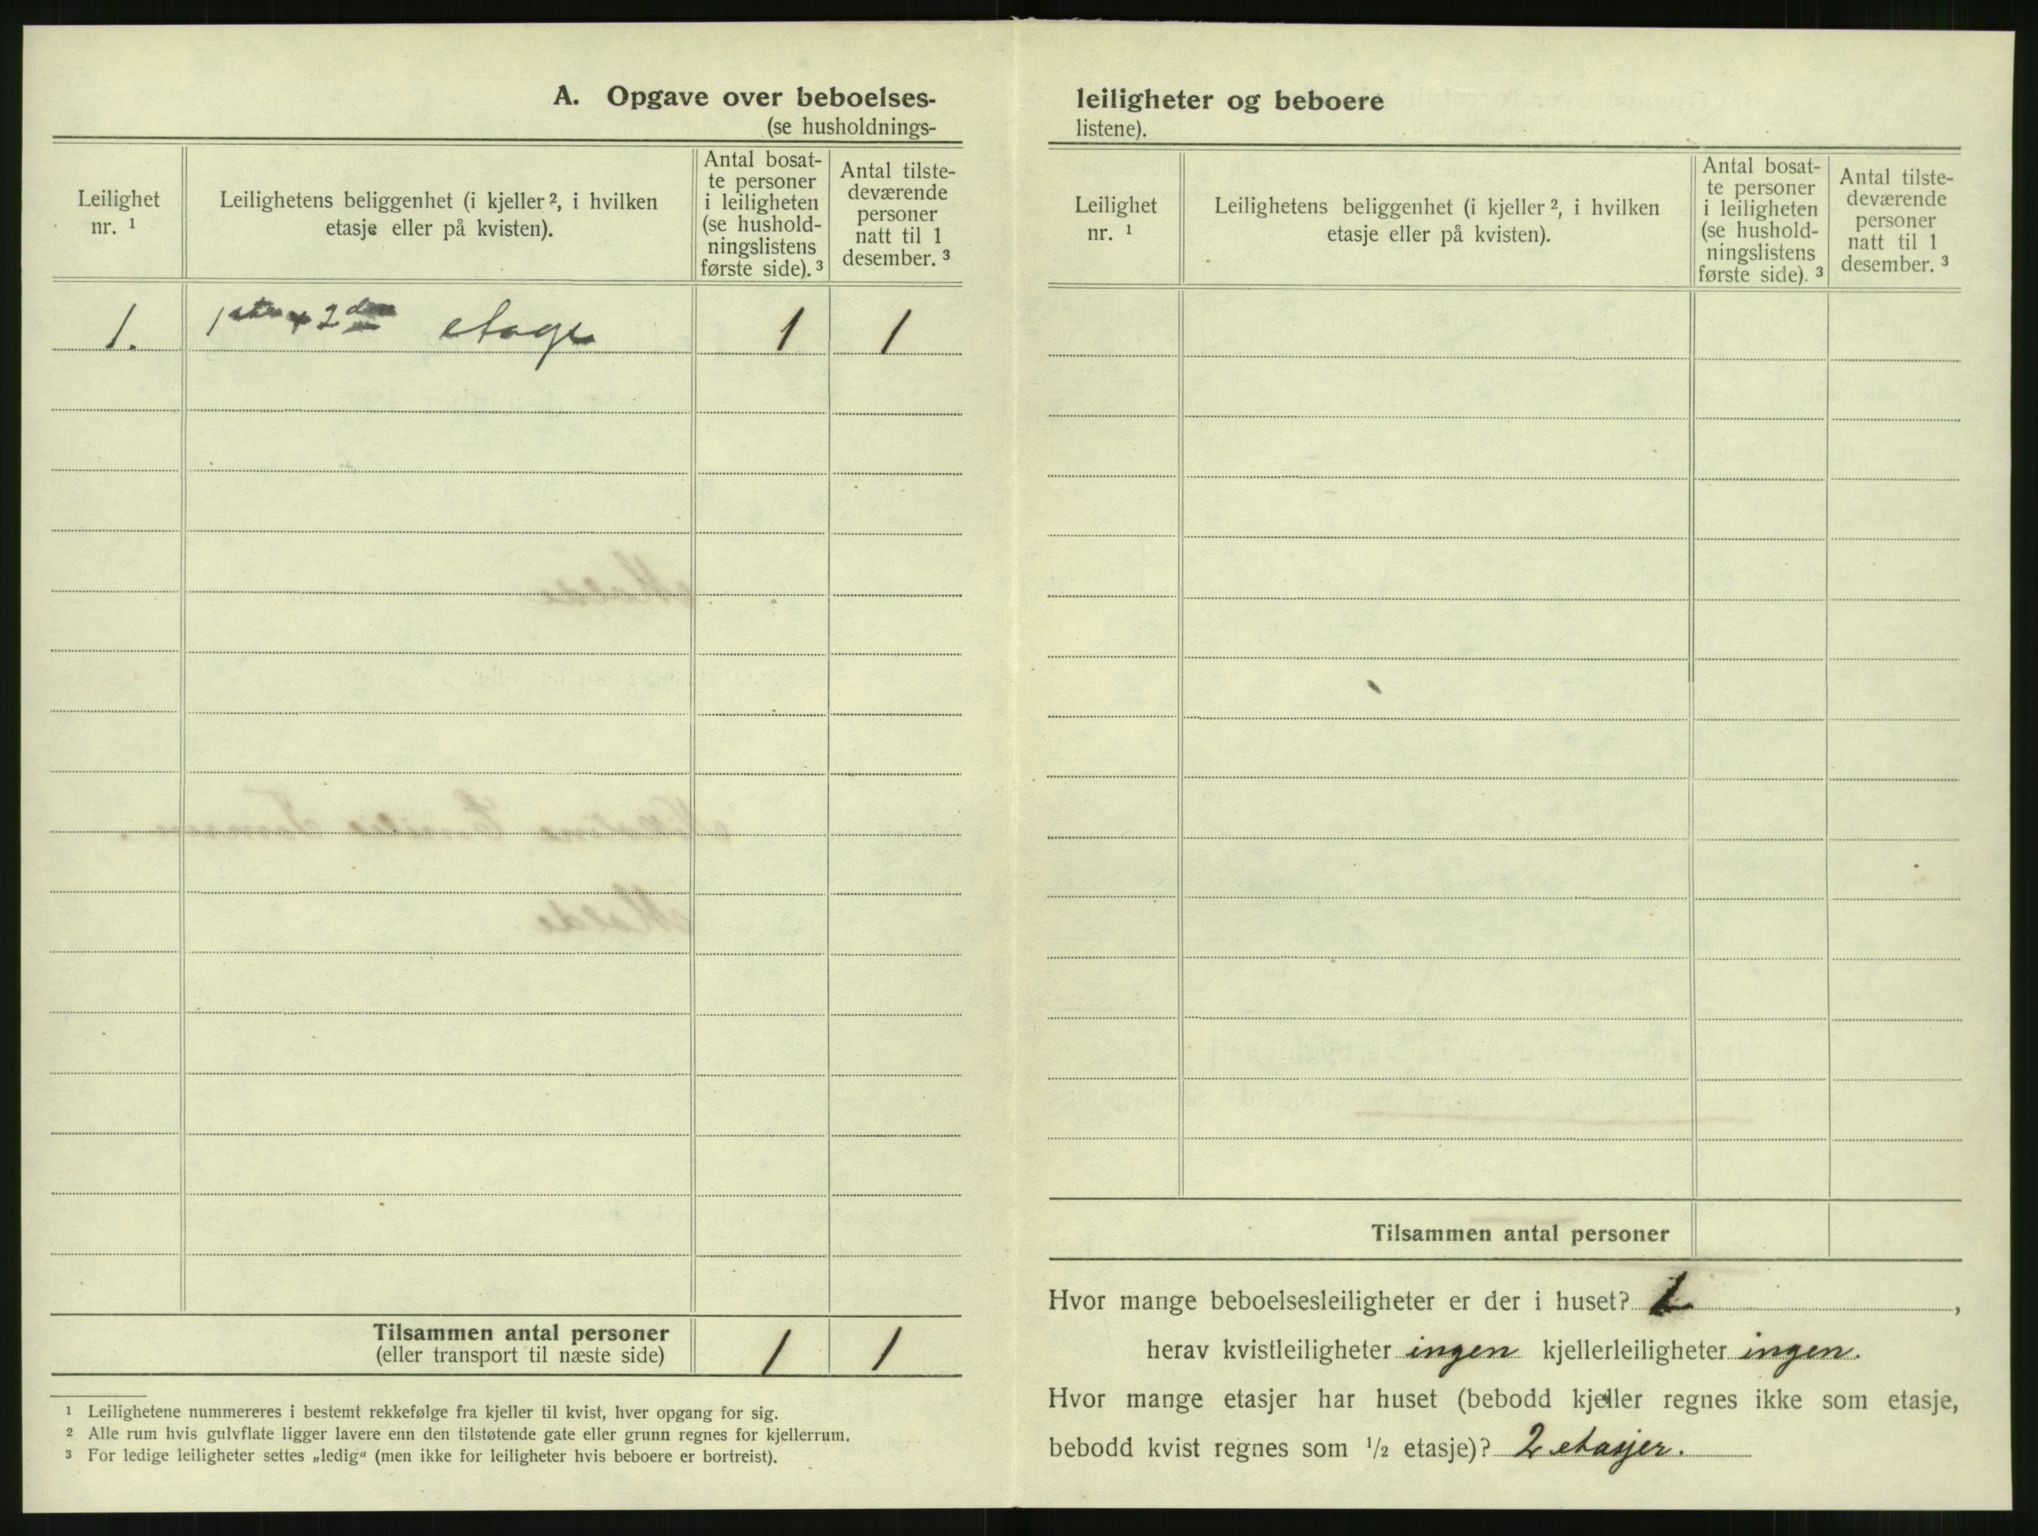 A. Opgave over beboelses-
(se husholdnings-
Leilighet
nr. 1
Leilighetens beliggenhet (i kjeller 2, i hvilken
etasje eller på kvisten).
Antal bosat-
te personer
i leiligheten
(se hushold-
ningslistens
første side). 3
Antal tilste-
deværende
personer
natt til 1
desember. 3
1. 1ste + 2den etage 1 1
Tilsammen antal personer
(eller transport til næste side) 1 1
1 Leilighetene nummereres i bestemt rekkefølge fra kjeller til kvist, hver opgang for sig.
2 Alle rum hvis gulvflate ligger lavere enn den tilstøtende gate eller grunn regnes for kjellerrum.
3 For ledige leiligheter settes „ledig“ (men ikke for leiligheter hvis beboere er bortreist).
leiligheter og beboere
listene).
Leilighet
nr. 1
Leilighetens beliggenhet (i kjeller 2, i hvilken
etasje eller på kvisten).
Antal bosat-
te personer
i leiligheten
(se hushold-
ningslistens
første side). 3
Antal tilste-
deværende
personer
natt til 1
desember. 3
Tilsammen antal personer
Hvor mange beboelsesleiligheter er der i huset? 1,
herav kvistleiligheter ingen kjellerleiligheter ingen.
Hvor mange etasjer har huset (bebodd kjeller regnes ikke som etasje,
bebodd kvist regnes som 1/2 etasje)? 2 etasjer.